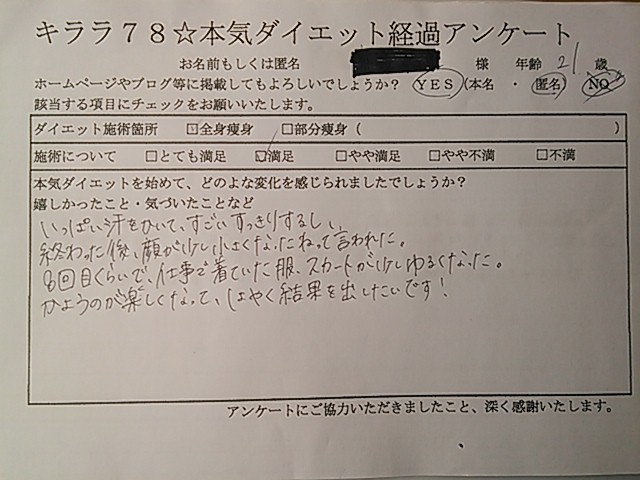 キララ７８☆本気ダイエット経過アンケート
お名前もしくは匿名 様 年齢 21 歳
ホームページやブログ等に掲載してもよろしいでしょうか？ YES（本名・匿名） NO
該当する項目にチェックをお願いいたします。
ダイエット施術箇所 ☑全身痩身 □部分痩身（ ）
施術について □とても満足 ☑満足 □やや満足 □やや不満 □不満
本気ダイエットを始めて、どのよな変化を感じられましたでしょうか？
嬉しかったこと・気づいたことなど
いっぱい汗をかいて、すごいすっきりするし、
終わった後、顔が少し小さくなったねって言われた。
8回目くらいで、仕事で着ていた服、スカートが少しゆるくなった。
かようのが楽しくなって、はやく結果を出したいです！
アンケートにご協力いただきましたこと、深く感謝いたします。